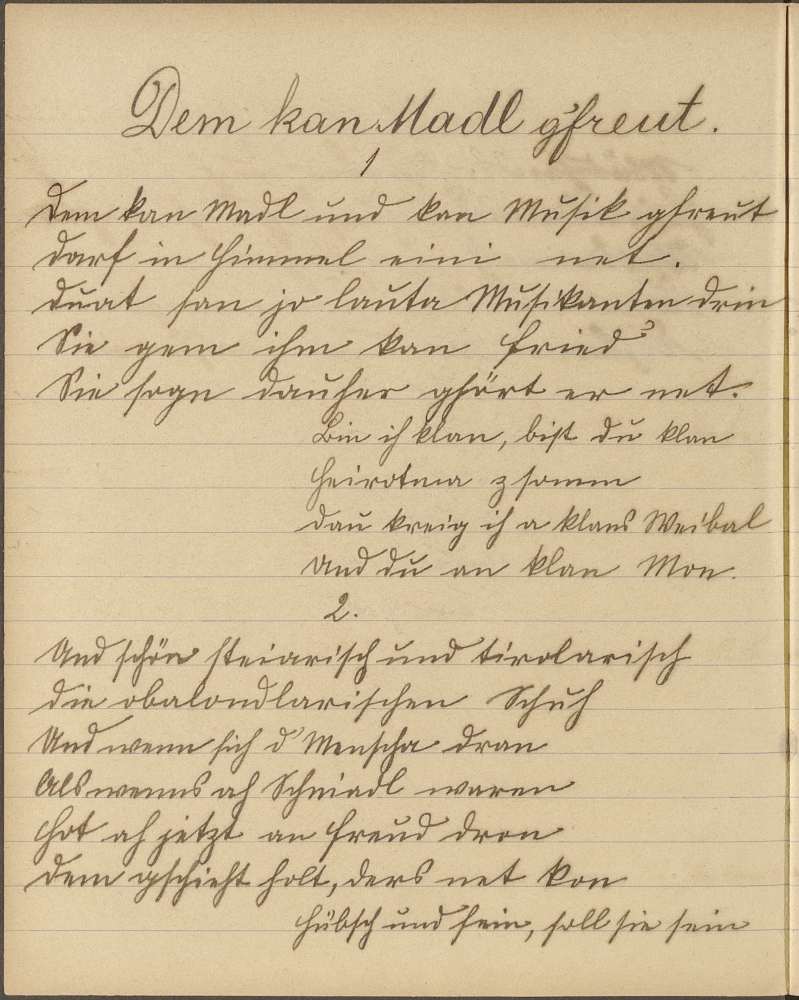 Dem kan Madl g'freut.
1
Dem kan Madl und kan Musik gfreut
darf in Himmel eini net.
duat san jo lauta Musikanten drin
Sie gem ihm kan Fried
Sie sogn dauher ghört er net.
Bin ich klan, bist du klan
Heirotma zsomm
dau kreig ich a klans Weibal
und du an klan Mon.
2.
Und schön steiarisch und tirolarisch
die obalondlarischen Schuh
Und wenn sich d' Menscha dran
Als wenns ah Schniadl waren
Hot ah jetzt an Freud dron
dem gschieht holt, ders net kon
Hübsch und fein, soll sie sein